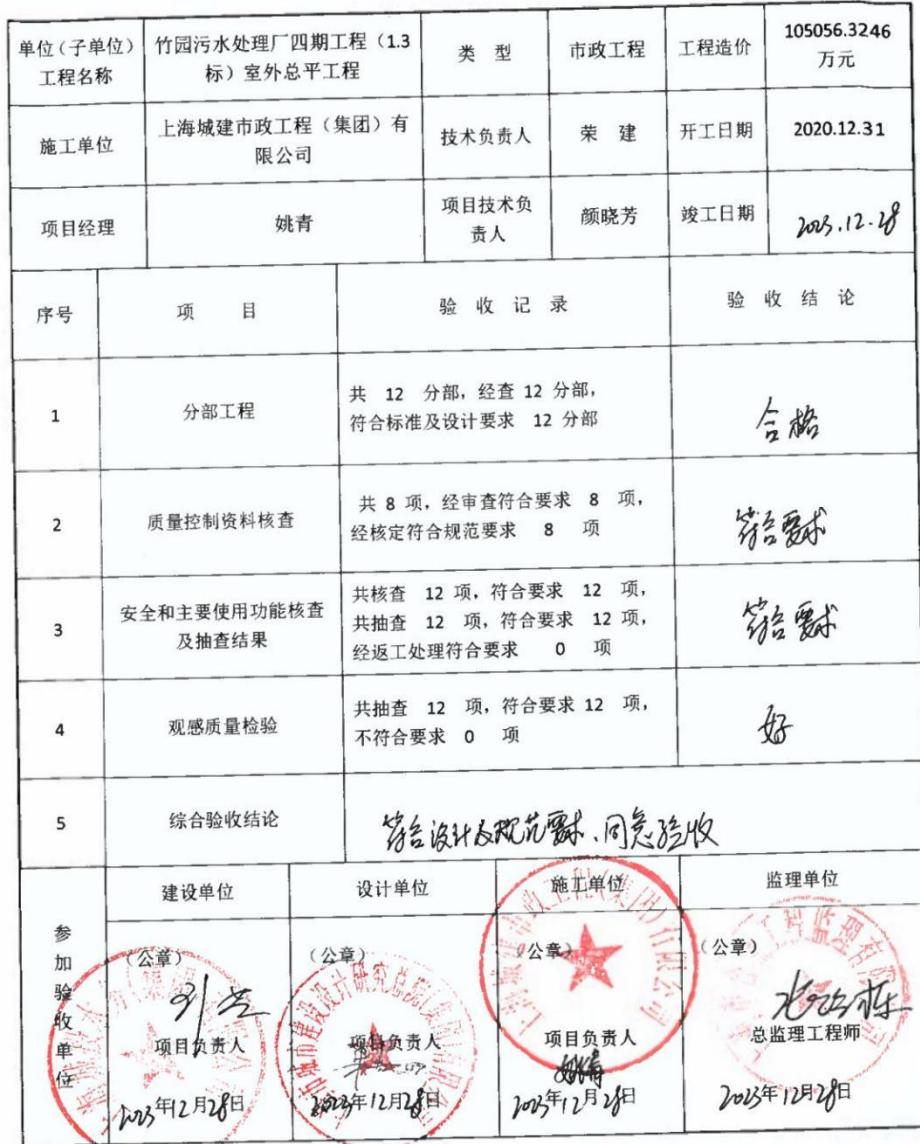 单位（子单位）
工程名称
竹园污水处理厂四期工程（1.3
标）室外总平工程
类 型
市政工程
工程造价
105056.3246
万元
施工单位
上海城建市政工程（集团）有
限公司
技术负责人
荣 建
开工日期
2020.12.31
项目经理
姚青
项目技术负
责人
颜晓芳
竣工日期
2023.12.28
序号
项 目
验 收 记 录
验 收 结 论
1
分部工程
共 12 分部，经查 12 分部，
符合标准及设计要求 12 分部
合格
2
质量控制资料核查
共 8 项，经审查符合要求 8 项，
经核定符合规范要求 8 项
符合要求
3
安全和主要使用功能核查
及抽查结果
共核查 12 项，符合要求 12 项，
共抽查 12 项，符合要求 12 项，
经返工处理符合要求 0 项
符合要求
4
观感质量检验
共抽查 12 项，符合要求 12 项，
不符合要求 0 项
好
5
综合验收结论
符合设计及规范要求、同意验收
参加验收单位
建设单位
设计单位
施工单位
监理单位
（公章）
（公章）
（公章）
（公章）
项目负责人
项目负责人
项目负责人
总监理工程师
姚青
2023年12月28日
2023年12月28日
2023年12月28日
2023年12月28日